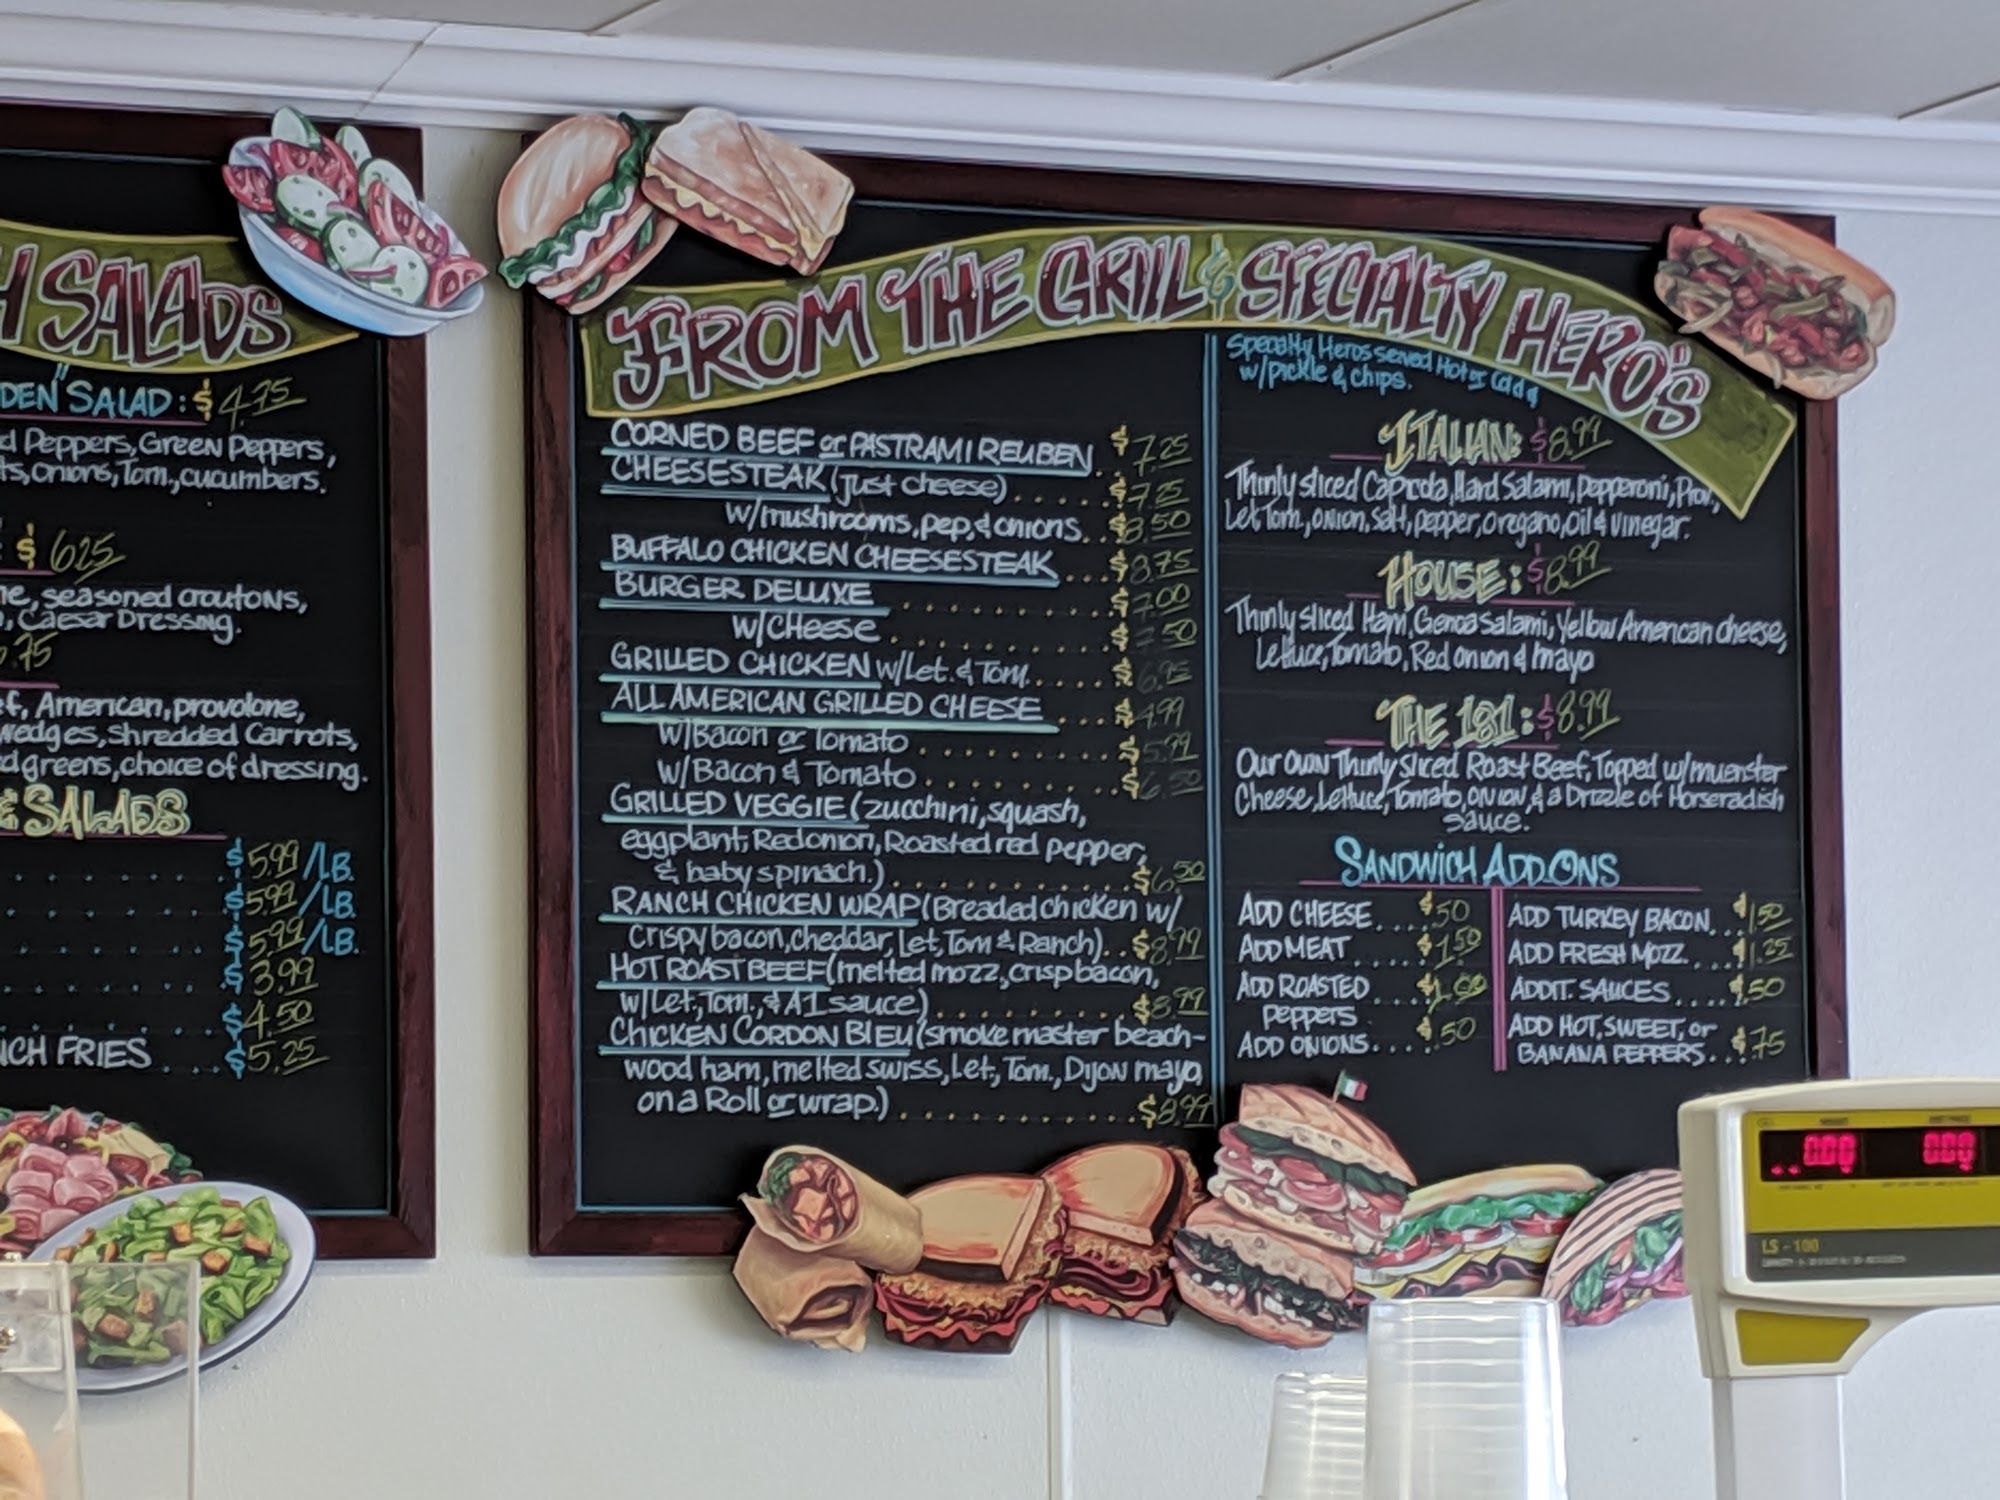 H SALADS
DEN" SALAD: $4.75
d Peppers, Green Peppers,
ts, onions, Tom., cucumbers.
$6.25
ne, seasoned croutons,
, Caesar Dressing.
.75
ef, American, provolone,
wedges, Shredded Carrots,
d greens, choice of dressing.
& SALADS
$5.99/LB.
$5.99/LB.
$5.99/LB.
$3.99
$4.50
NCH FRIES ... $5.25
FROM THE GRILL & SPECIALTY HERO'S
CORNED BEEF or PASTRAMI REUBEN .. $7.25
CHEESESTEAK (just cheese) .... $7.25
w/mushrooms, pep, & onions. $8.50
BUFFALO CHICKEN CHEESESTEAK ... $8.75
BURGER DELUXE .......... $7.00
w/CHeese .......... $7.50
GRILLED CHICKEN w/Let. & Tom. .... $6.25
ALL AMERICAN GRILLED CHEESE ... $4.99
w/Bacon or Tomato ......... $5.99
w/Bacon & Tomato ......... $6.50
GRILLED VEGGIE (zucchini, squash,
eggplant, Red onion, Roasted red pepper,
& baby spinach.) .......... $6.50
RANCH CHICKEN WRAP (Breaded chicken w/
Crispy bacon, cheddar, Let, Tom & Ranch).. $8.99
HOT ROAST BEEF (melted mozz, crisp bacon,
w/Let., Tom., & A1 sauce) ........ $8.99
CHICKEN CORDON BLEU (smoke master beach-
wood ham, melted swiss, Let., Tom., Dijon mayo,
on a Roll or wrap.) .......... $8.99
Specialty Heros served Hot or Cold
w/pickle & chips.
ITALIAN: $8.99
Thinly sliced Capicola, Hard Salami, Pepperoni, Prov,
Let Tom, onion, salt, pepper, oregano, oil & vinegar.
HOUSE: $8.99
Thinly sliced Ham, Genoa Salami, Yellow American cheese,
Lettuce, Tomato, Red onion & mayo
THE 181: $8.99
Our own Thinly sliced Roast Beef, Topped w/muenster
Cheese, Lettuce, Tomato, onion, & a Drizzle of Horseradish
sauce.
SANDWICH ADD.ONS
ADD CHEESE .... $.50
ADD MEAT ..... $1.50
ADD ROASTED .... $1.00
PEPPERS
ADD ONIONS.... $.50
ADD TURKEY BACON... $1.50
ADD FRESH MOZZ.... $1.25
ADDIT. SAUCES .... $.50
ADD HOT, SWEET, or
BANANA PEPPERS... $.75
LS-100